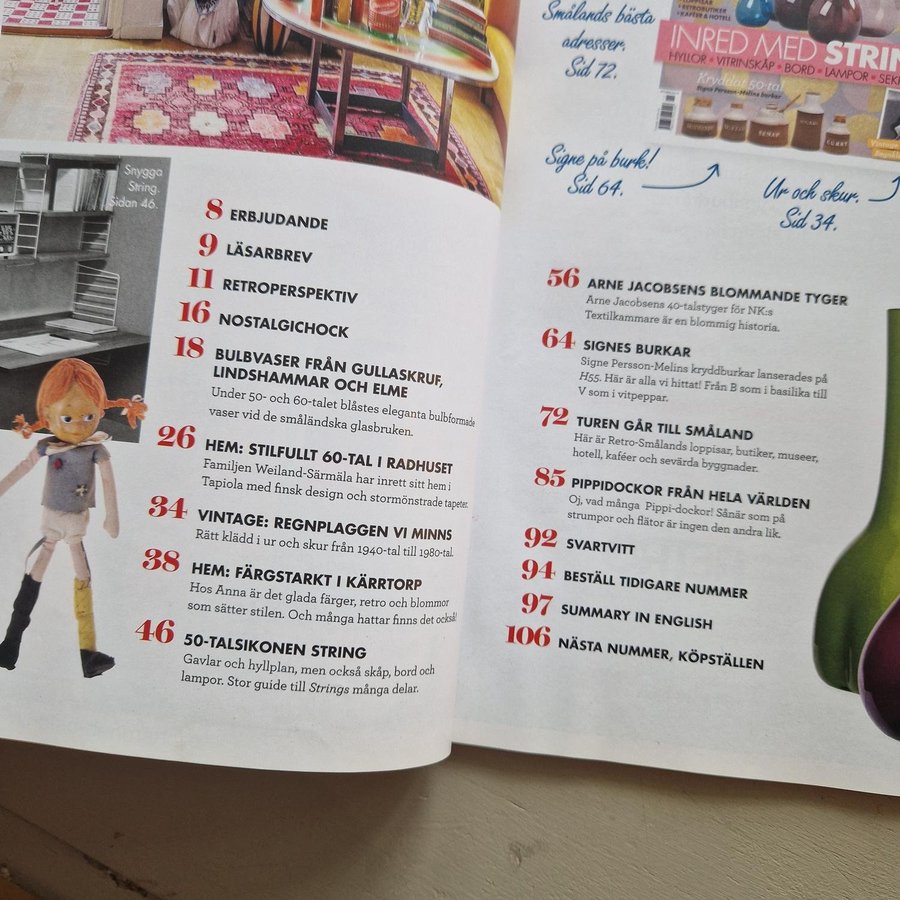 Snygga
String.
Sidan 46.
8 ERBJUDANDE
9 LÄSARBREV
11 RETROPERSPEKTIV
16 NOSTALGICHOCK
18 BULBVASER FRÅN GULLASKRUF,
LINDSHAMMAR OCH ELME
Under 50- och 60-talet blåstes eleganta bulbformade
vaser vid de småländska glasbruken.
26 HEM: STILFULLT 60-TAL I RADHUSET
Familjen Weiland-Särmäla har inrett sitt hem i
Tapiola med finsk design och stormönstrade tapeter.
34 VINTAGE: REGNPLAGGEN VI MINNS
Rätt klädd i ur och skur från 1940-tal till 1980-tal.
38 HEM: FÄRGSTARKT I KÄRRTORP
Hos Anna är det glada färger, retro och blommor
som sätter stilen. Och många hattar finns det också!
46 50-TALSIKONEN STRING
Gavlar och hyllplan, men också skåp, bord och
lampor. Stor guide till Strings många delar.
Smålands bästa
adresser.
Sid 72.
LOPPISAR
• RETROBUTIKER
• KAFÉER & HOTELL
INRED MED STRIN
HYLLOR • VITRINSKÅP • BORD • LAMPOR • SEK
Kryddat 50-tal
Signe Persson-Melins burkar
Vintage
Signe på burk!
Sid 64.
Ur och skur.
Sid 34.
56 ARNE JACOBSENS BLOMMANDE TYGER
Arne Jacobsens 40-talstyger för NK:s
Textilkammare är en blommig historia.
64 SIGNES BURKAR
Signe Persson-Melins kryddburkar lanserades på
H55. Här är alla vi hittat! Från B som i basilika till
V som i vitpeppar.
72 TUREN GÅR TILL SMÅLAND
Här är Retro-Smålands loppisar, butiker, museer,
hotell, kaféer och sevärda byggnader.
85 PIPPIDOCKOR FRÅN HELA VÄRLDEN
Oj, vad många Pippi-dockor! Sånär som på
strumpor och flätor är ingen den andra lik.
92 SVARTVITT
94 BESTÄLL TIDIGARE NUMMER
97 SUMMARY IN ENGLISH
106 NÄSTA NUMMER, KÖPSTÄLLEN